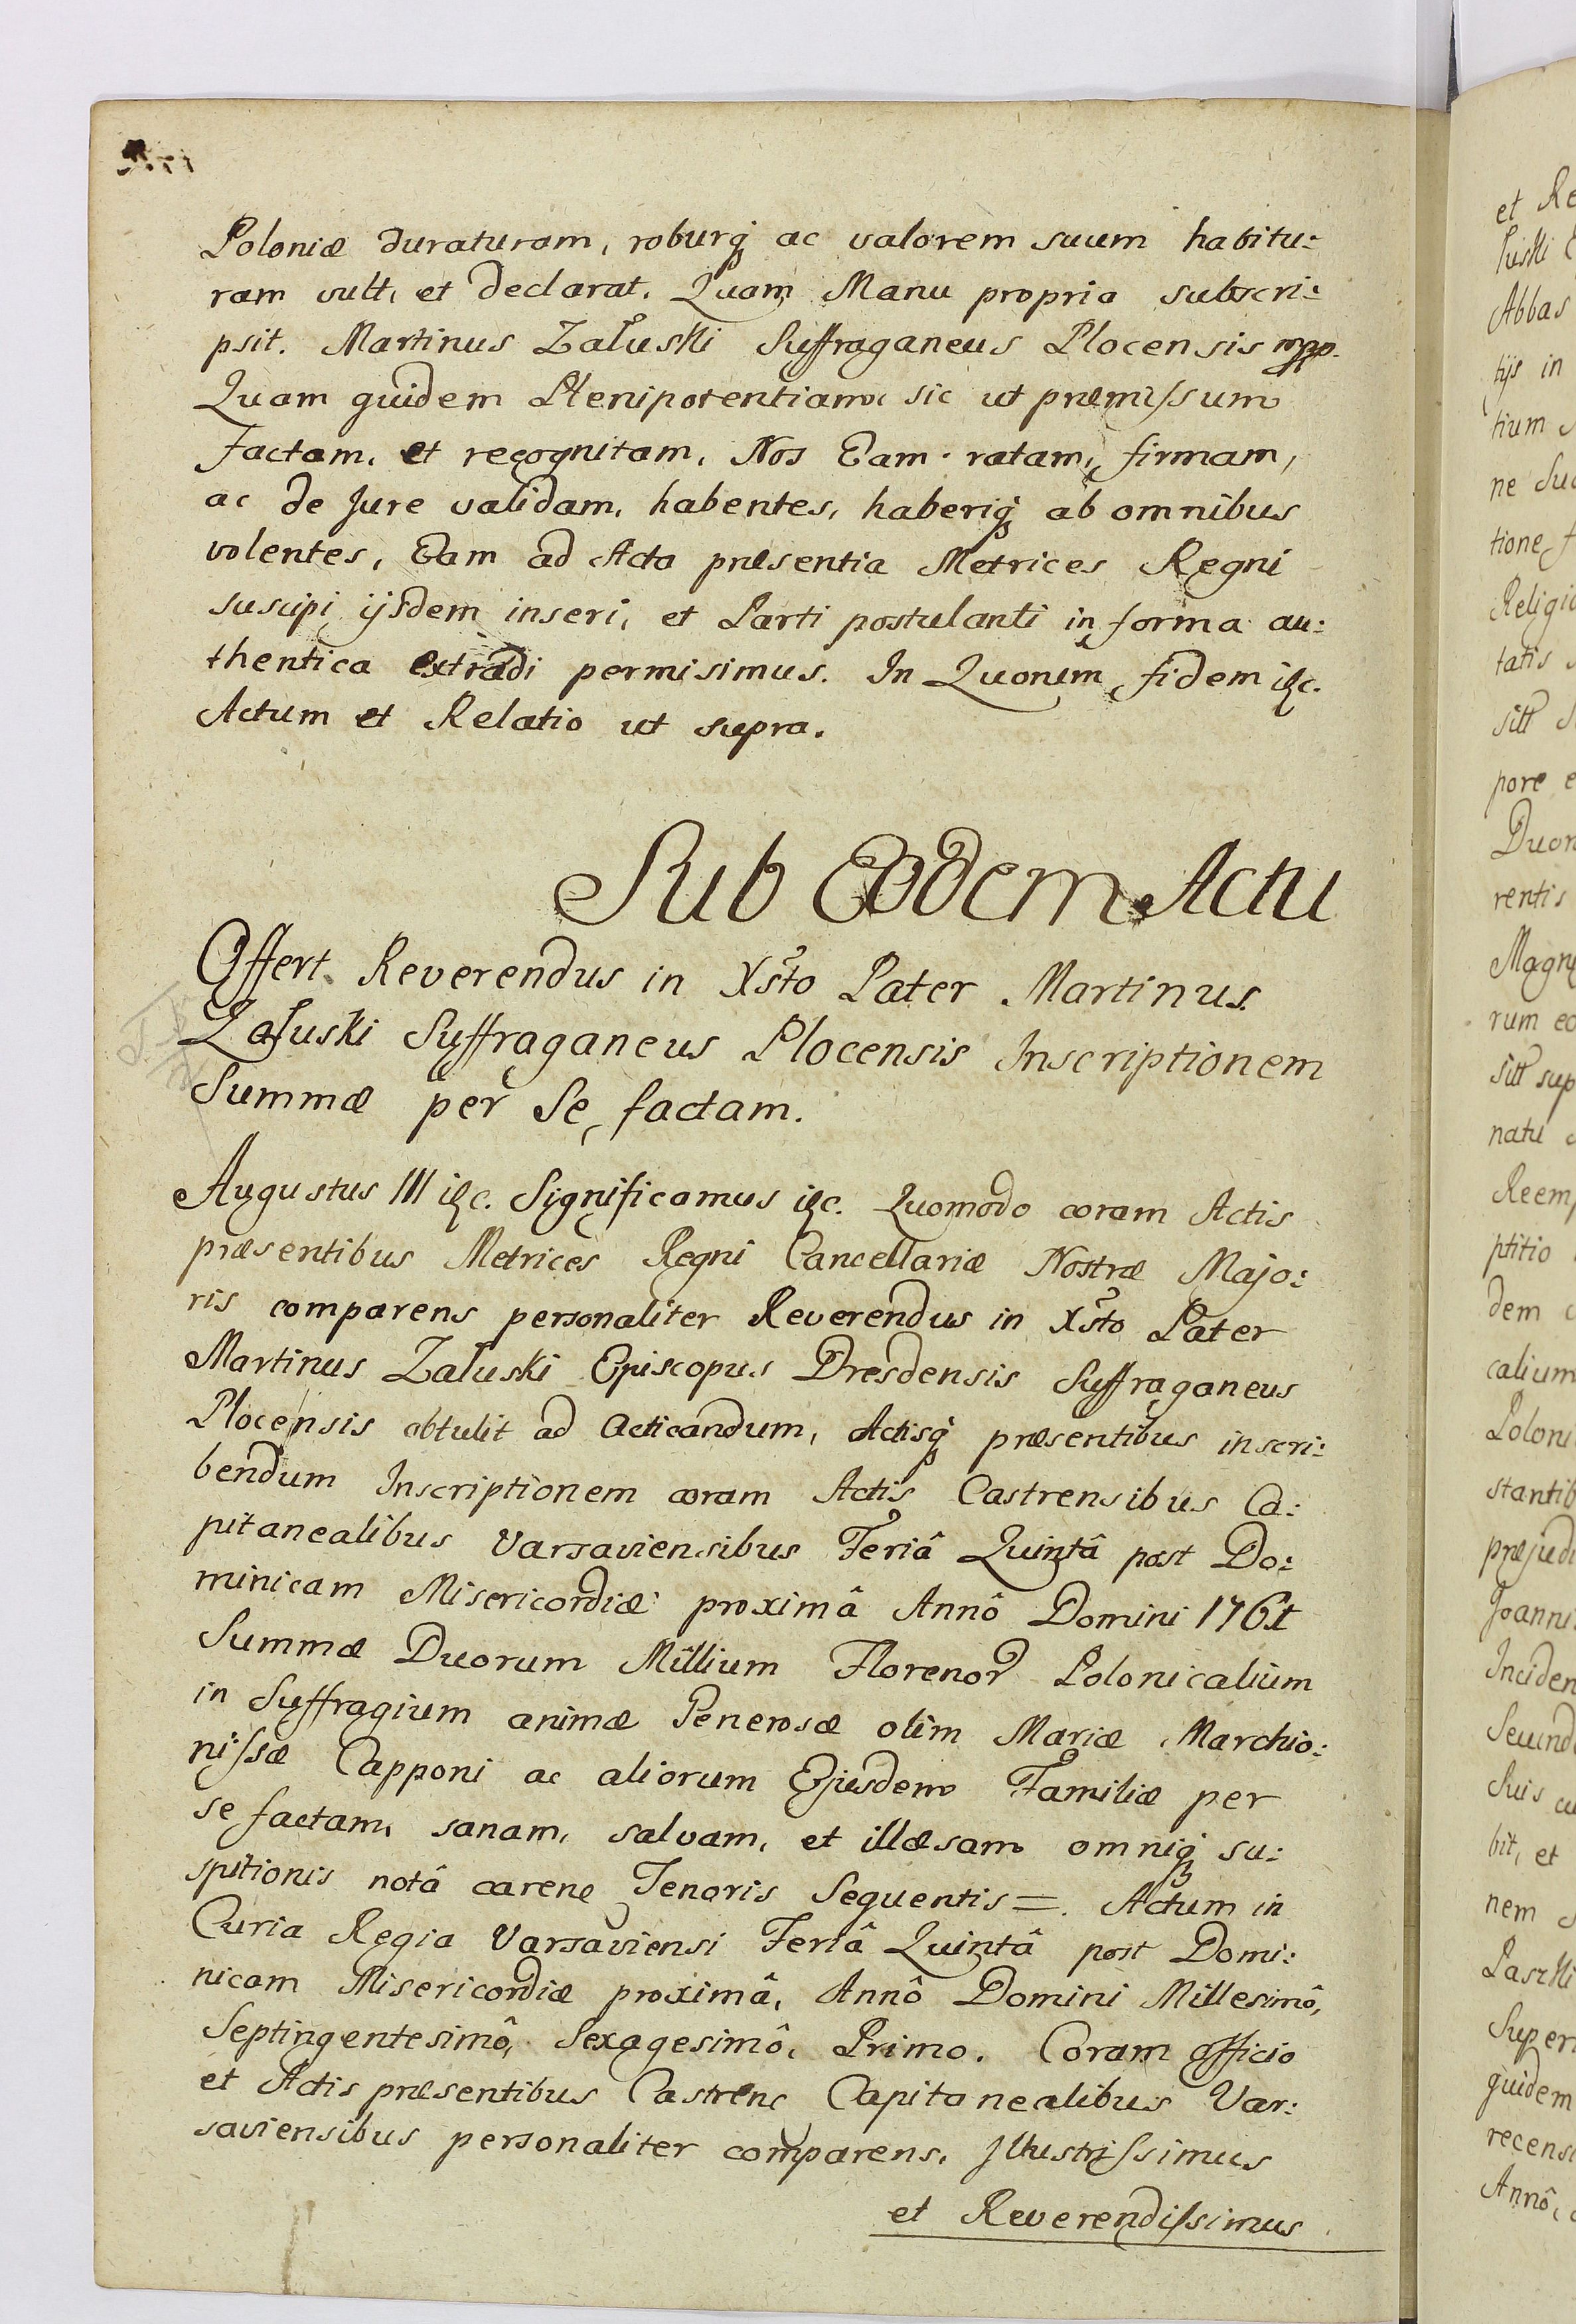 Poloniæ duraturam, roburq́ ac valorem suum habitu:
ram vult, et declarat. Quam Manu propria subscri:
psit. Martinus Załuski Suffraganeus Plocensis mpp.
Quam quidem Plenipotentiam sic ut præmissum
factam, et recognitam, Nos Eam ratam, firmam,
ac de Jure validam, habentes, haberiq́ ab omnibus
volentes, Eam ad Acta præsentia Metrices Regni
suscipi, ijsdem inseri, et Parti postulanti in forma au:
thentica extradi permisimus. In Quorum fidem &c.
Actum et Relatio ut supra.
Sub Eodem Actu
Offert Reverendus in Xsto Pater Martinus
Załuski Suffraganeus Plocensis Inscriptionem
Summæ per Se factam.
Augustus III &c. Significamus &c. Quomodo coram Actis
præsentibus Metrices Regni Cancellariæ Nostræ Majo:
ris comparens personaliter Reverendus in Xsto Pater
Martinus Załuski Episcopus Dresdensis Suffraganeus
Plocensis obtulit ad acticandum, Actisq́ præsentibus inscri:
bendum Inscriptionem coram Actis Castrensibus Ca:
pitanealibus Varsaviensibus Feriâ Quintâ post Do:
minicam Misericordiæ proximâ Annô Domini 1761
Summæ Duorum Millium Florenor Polonicalium
in Suffragium animæ Generosæ olim Mariæ Marchio:
nissæ Capponi ac aliorum Ejusdem Familiæ per
se factam, sanam, salvam, et illæsam omniq́ su:
spitionis notâ caren Tenoris Sequentis =. Actum in
Curia Regia Varsaviensi Feriâ Quintâ post Domi:
nicam Misericordiæ proximâ, Annô Domini Millesimô,
Septingentesimô, Sexagesimô, Primo. Coram officio
et Actis præsentibus Castren Capitanealibus Var:
saviensibus personaliter comparens, Illustrissimus
et Reverendissimus
et Re
Abbas
tijs in
tium
ne Suc
tione f
Religio
tatis
pore e
Duor
rentis
Magn
rum eo
sup
natu
Reem
ptitio
dem
calium
Poloni
stantib
præjudi
Joanni
Inciden
Secund
Suis
bit, et
nem
Super
quidem
recens
Annô,